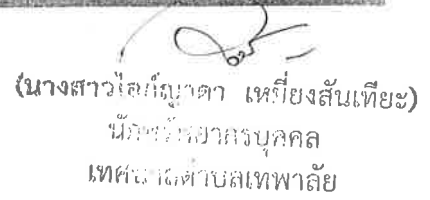 (นางสาวไอก์ญาดา เหนี่ยงสันเทียะ)
นักทรัพยากรบุคคล
เทศบาลตำบลเทพาลัย